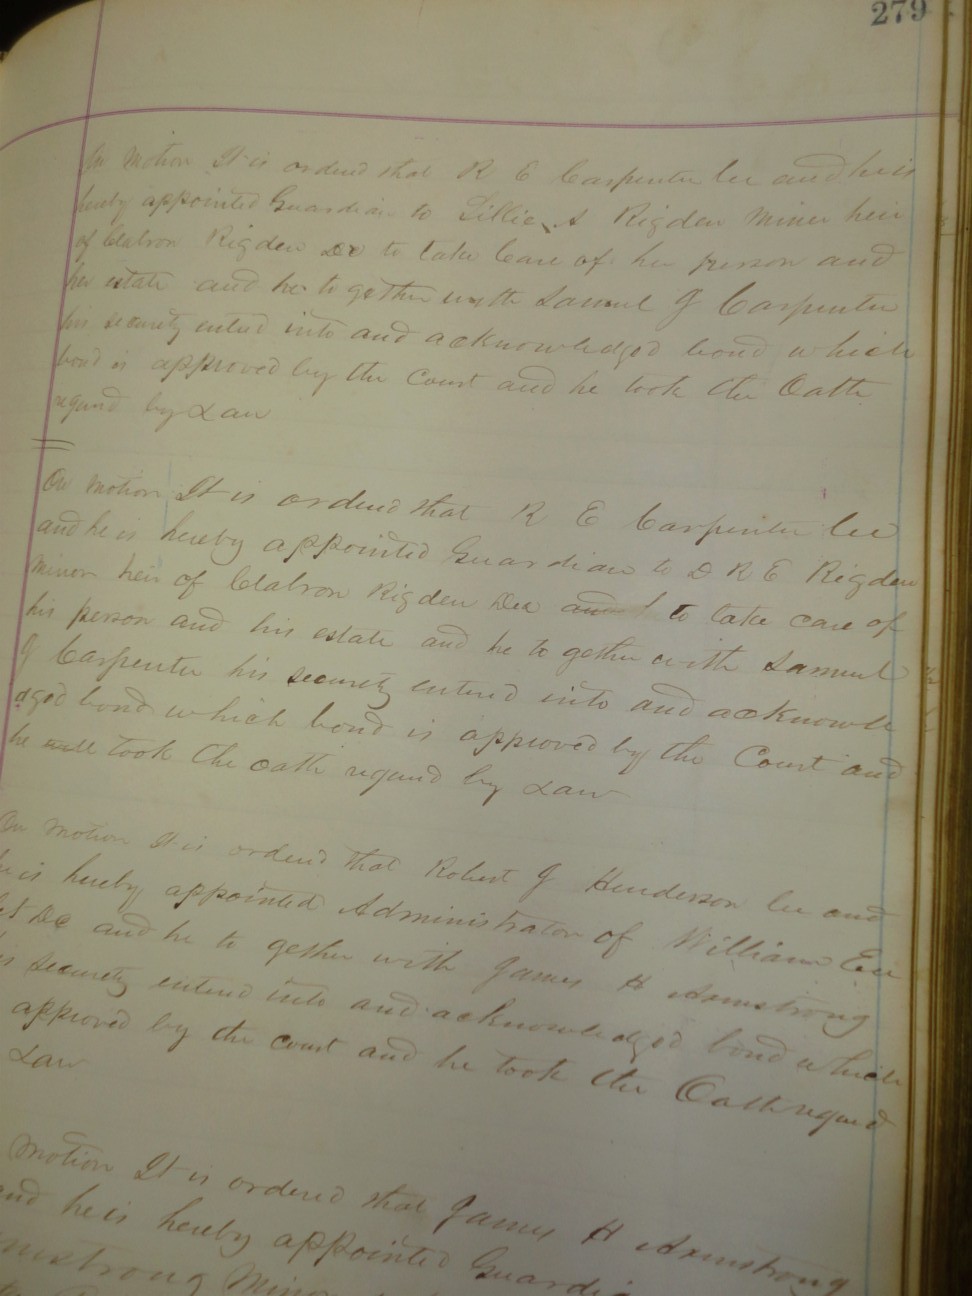 279
On Motion It is ordered that R E Carpenter be and he is
hereby appointed Guardian to Lillie A Rigden Miner heir
of Clabron Rigden Dec to take Care of her person and
her estate and he to gether with Samuel J Carpenter
his security entred into and acknowledged bond which
bond is approved by the Court and he took the Oath
requird by Law
On Motion It is ordered that R E Carpenter be
and he is hereby appointed Guardian to D R E Rigden
minor heir of Clabron Rigden Dec to take care of
his person and his estate and he to gether with Samuel
J Carpenter his security entered into and acknowle
dged bond which bond is approved by the Court and
he took the oath requird by Law
On Motion It is ordered that Robert J Henderson be and
he is hereby appointed Administrator of William
Dec and he to gether with James H Armstrong
his security entered into and acknowledged bond which
approved by the court and he took the Oath requird
Law
Motion It is ordered that James H Armstrong
and he is hereby appointed Guardi
mstrong Minor